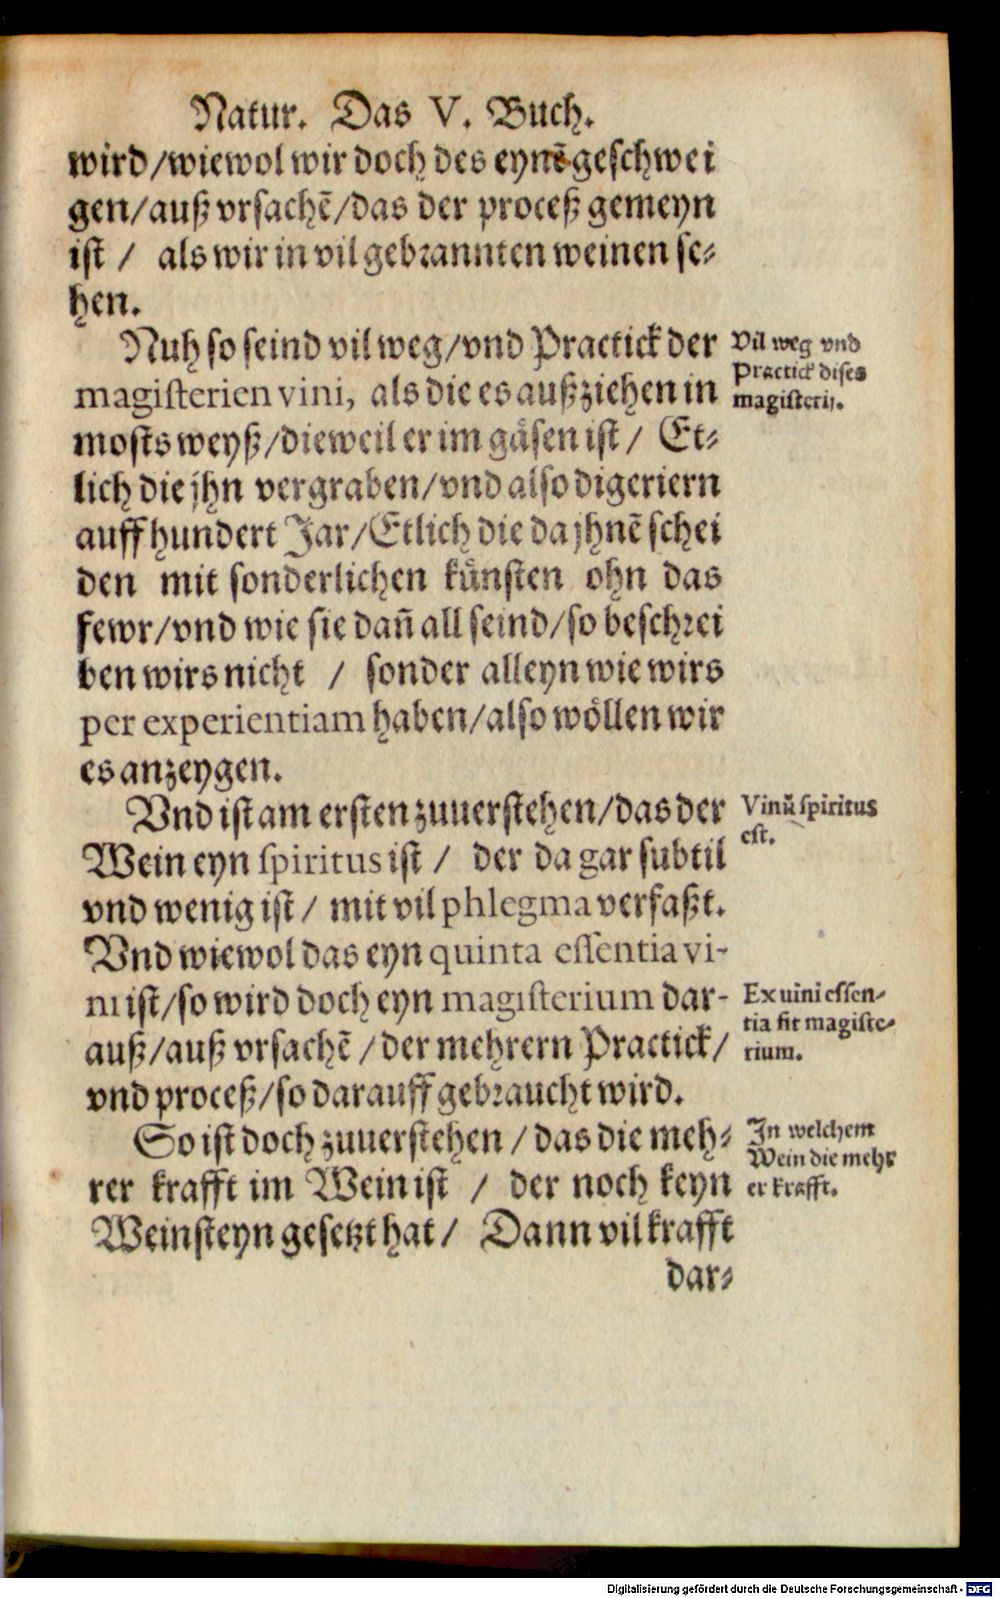 Natur. Das V. Buch.
wird/wiewol wir doch des eynẽ geschwei
gen/auß vrsachẽ/das der proceß gemeyn
ist / als wir in vil gebrannten weinen se-
hen.
Nuh so seind vil weg/vnd Practick der
magisterien vini, als die es außziehen in
mosts weyß/dieweil er im gåsen ist/ Et-
lich die jhn vergraben/vnd also digeriern
auff hundert Jar/Etlich die da jhnẽ schei
den mit sonderlichen kůnsten ohn das
fewr/vnd wie sie dañ all seind/so beschrei
ben wirs nicht / sonder alleyn wie wirs
per experientiam haben/also wöllen wir
es anzeygen.
Vnd ist am ersten zuuerstehen/das der
Wein eyn spiritus ist / der da gar subtil
vnd wenig ist/ mit vil phlegma verfaßt.
Vnd wiewol das eyn quinta essentia vi-
ni ist/so wird doch eyn magisterium dar-
auß/auß vrsachẽ/der mehrern Practick/
vnd proceß/so darauff gebraucht wird.
So ist doch zuuerstehen/das die meh-
rer krafft im Wein ist / der noch keyn
Weinsteyn gesetzt hat/ Dann vil krafft
dar-
Vil weg vnd
Practick dises
magisterij.
Vinũ spiritus
est.
Ex uini essen-
tia fit magiste-
rium.
In welchem
Wein die mehr
er krafft.
Digitalisierung gefördert durch die Deutsche Forschungsgemeinschaft - DFG